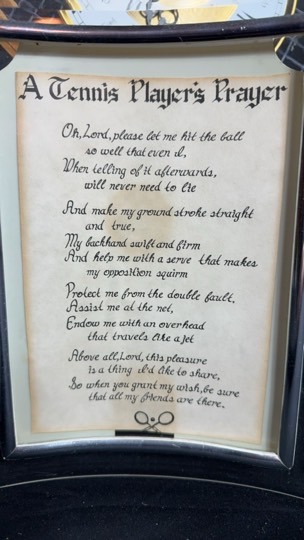 A Tennis Player's Prayer
Oh, Lord, please let me hit the ball
so well that even I,
When telling of it afterwards,
will never need to lie
And make my ground stroke straight
and true,
My backhand swift and firm
And help me with a serve that makes
my opposition squirm
Protect me from the double fault,
Assist me at the net,
Endow me with an overhead
that travels like a jet
Above all, Lord, this pleasure
is a thing I'd like to share,
So when you grant my wish, be sure
that all my friends are there.